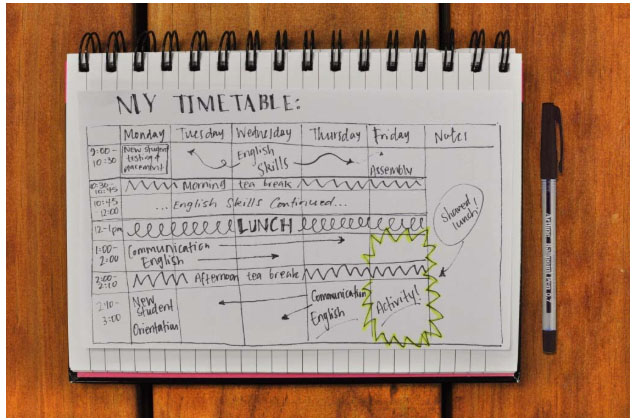 MY TIMETABLE:
Monday Tuesday Wednesday Thursday Friday Notes
9:00 - 10:30
New student testing & placement
English Skills
Assembly
10:30 - 10:45
Morning tea break
10:45
12:00
...English Skills Continued...
12-1pm
LUNCH
Shared lunch!
1:00 - 2:00
Communication English
2:00 - 2:10
Afternoon tea break
2:10 - 3:00
New Student Orientation
Communication English
Activity!